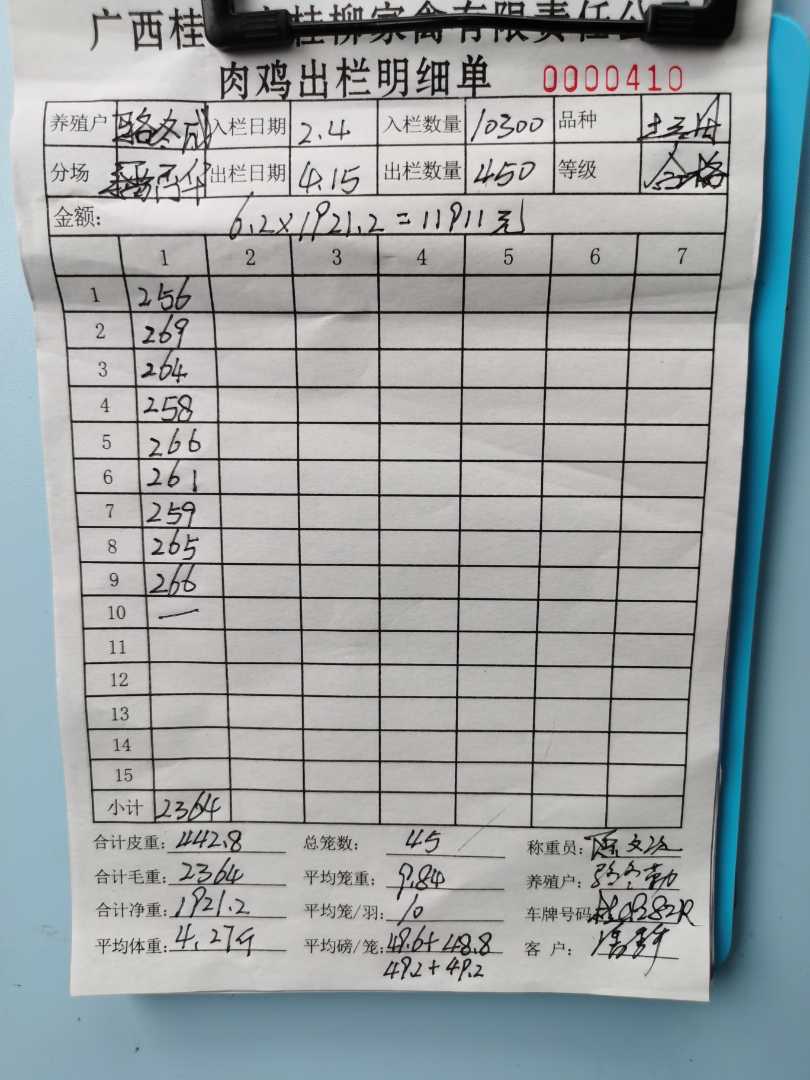 广西桂 桂柳家禽有限责任公司
肉鸡出栏明细单 0000410
养殖户 骆冬成 入栏日期 2.4 入栏数量 10300 品种
分场 出栏日期 4.15 出栏数量 450 等级 合格
金额: 6.2×1921.2=11911元
1 2 3 4 5 6 7
1 256
2 269
3 264
4 258
5 266
6 261
7 259
8 265
9 266
10 —
11
12
13
14
15
小计 2364
合计皮重: 442.8 总笼数: 45 称重员:
合计毛重: 2364 平均笼重: 9.84 养殖户:
合计净重: 1921.2 平均笼/羽: 10 车牌号码
平均体重: 4.27斤 平均磅/笼: 48.6+48.8 客户:
49.2+49.2